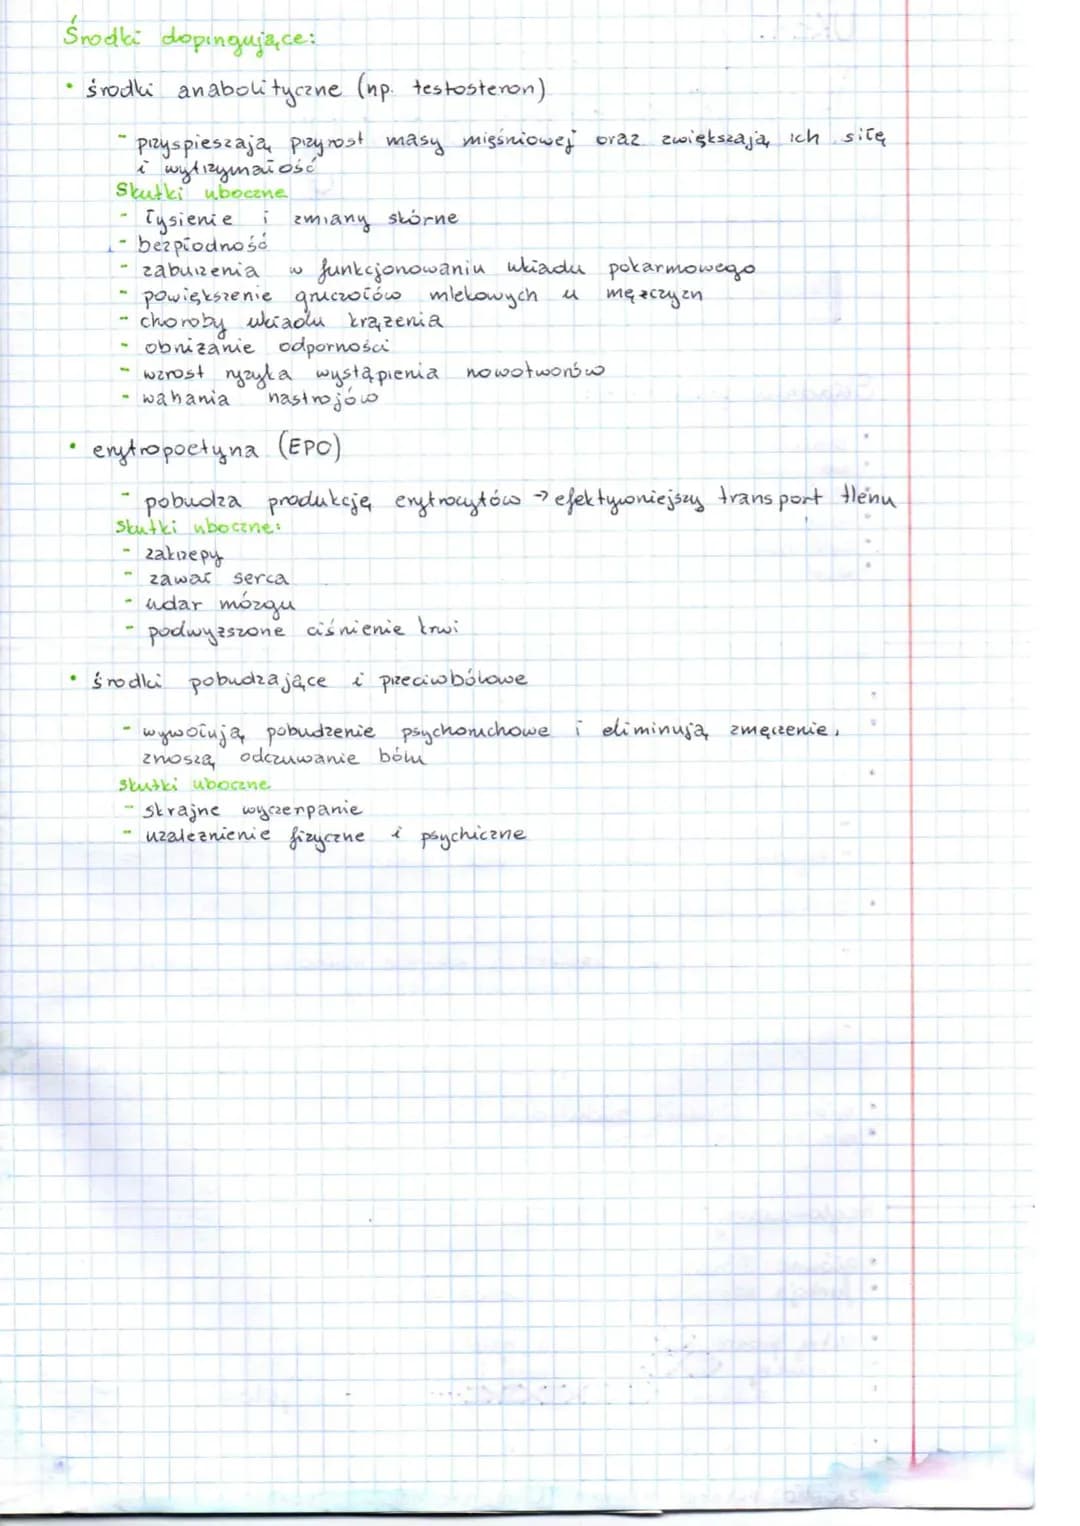 Środki dopingujące:
• środki anabolityczne (np. testosteron)
- przyspieszają przyrost masy mięśniowej oraz zwiększają ich siłę
i wytrzymałość
Skutki uboczne
- łysienie i zmiany skórne
- bezpłodność
- zaburzenia w funkcjonowaniu układu pokarmowego
- powiększenie gruczołów mlekowych u mężczyzn
- choroby układu krążenia
- obniżanie odporności
- wzrost ryzyka wystąpienia nowotworów
- wahania nastrojów
• erytropoetyna (EPO)
- pobudza produkcję erytrocytów → efektywniejszy transport tlenu
Skutki uboczne:
- zakrzepy
- zawał serca
- udar mózgu
- podwyższone ciśnienie krwi
• środki pobudzające i przeciwbólowe
- wywołują pobudzenie psychoruchowe i eliminują zmęczenie,
znoszą odczuwanie bólu
skutki uboczne
- skrajne wyczerpanie
- uzależnienie fizyczne i psychiczne